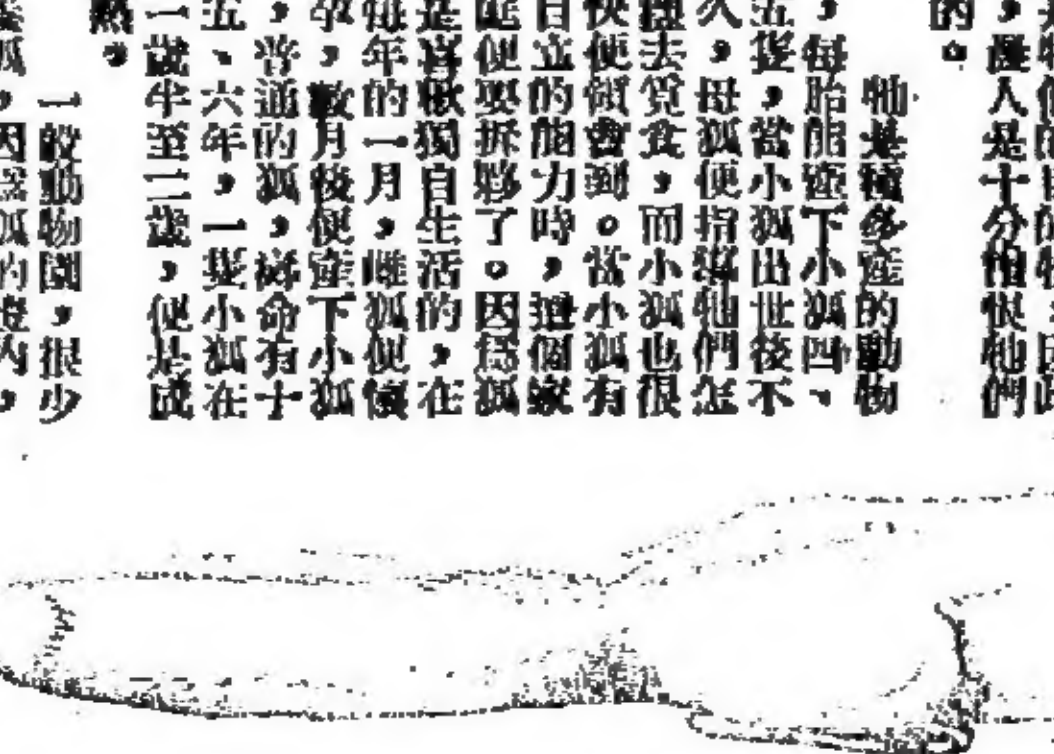 農人是十分怕恨牠們
的。
牠是種多產的動物
，每胎能產下小狐四、
五隻，當小狐出世後不
久，母狐便指導牠們怎
去覓食，而小狐也很
快便領會到。當小狐有
自立的能力時，這個家
庭便要拆夥了。因爲狐
是喜歡獨自生活的，在
每年的一月，雌狐便懷
孕，數月後便產下小狐
，普通的狐，壽命有十
五、六年，一隻小狐在
一歲半至二歲，便是成
熟。
一般動物園，很少
狐，因爲狐的